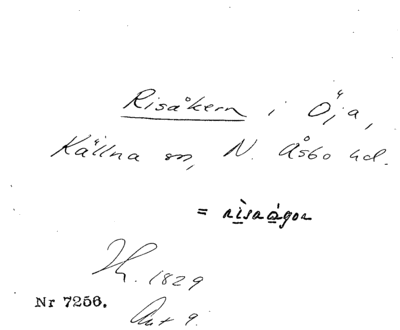 Risåkern i Öja,
Källna sn, N. Åsbo hd.
= risaågor
H. 1829
Nr 7256.
Akt 9.